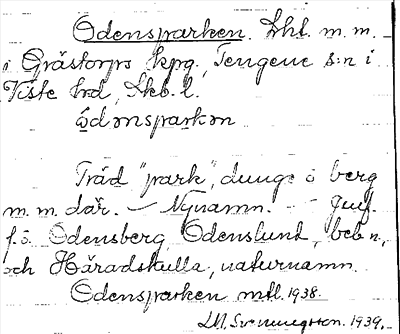 Odensparken. Lhl. m. m.
i Grästorps kpg., Tengene s:n i
Viste hrd, Skb. l.
ɷ̀dənsparkən
Träd "park", dunge o berg
m. m. där. – Nynamn. – Jmf.
f. ö. Odensberg, Odenslund, beb n,
och Häradskulla, naturnamn.
Odensparken mtl. 1938.
1939.